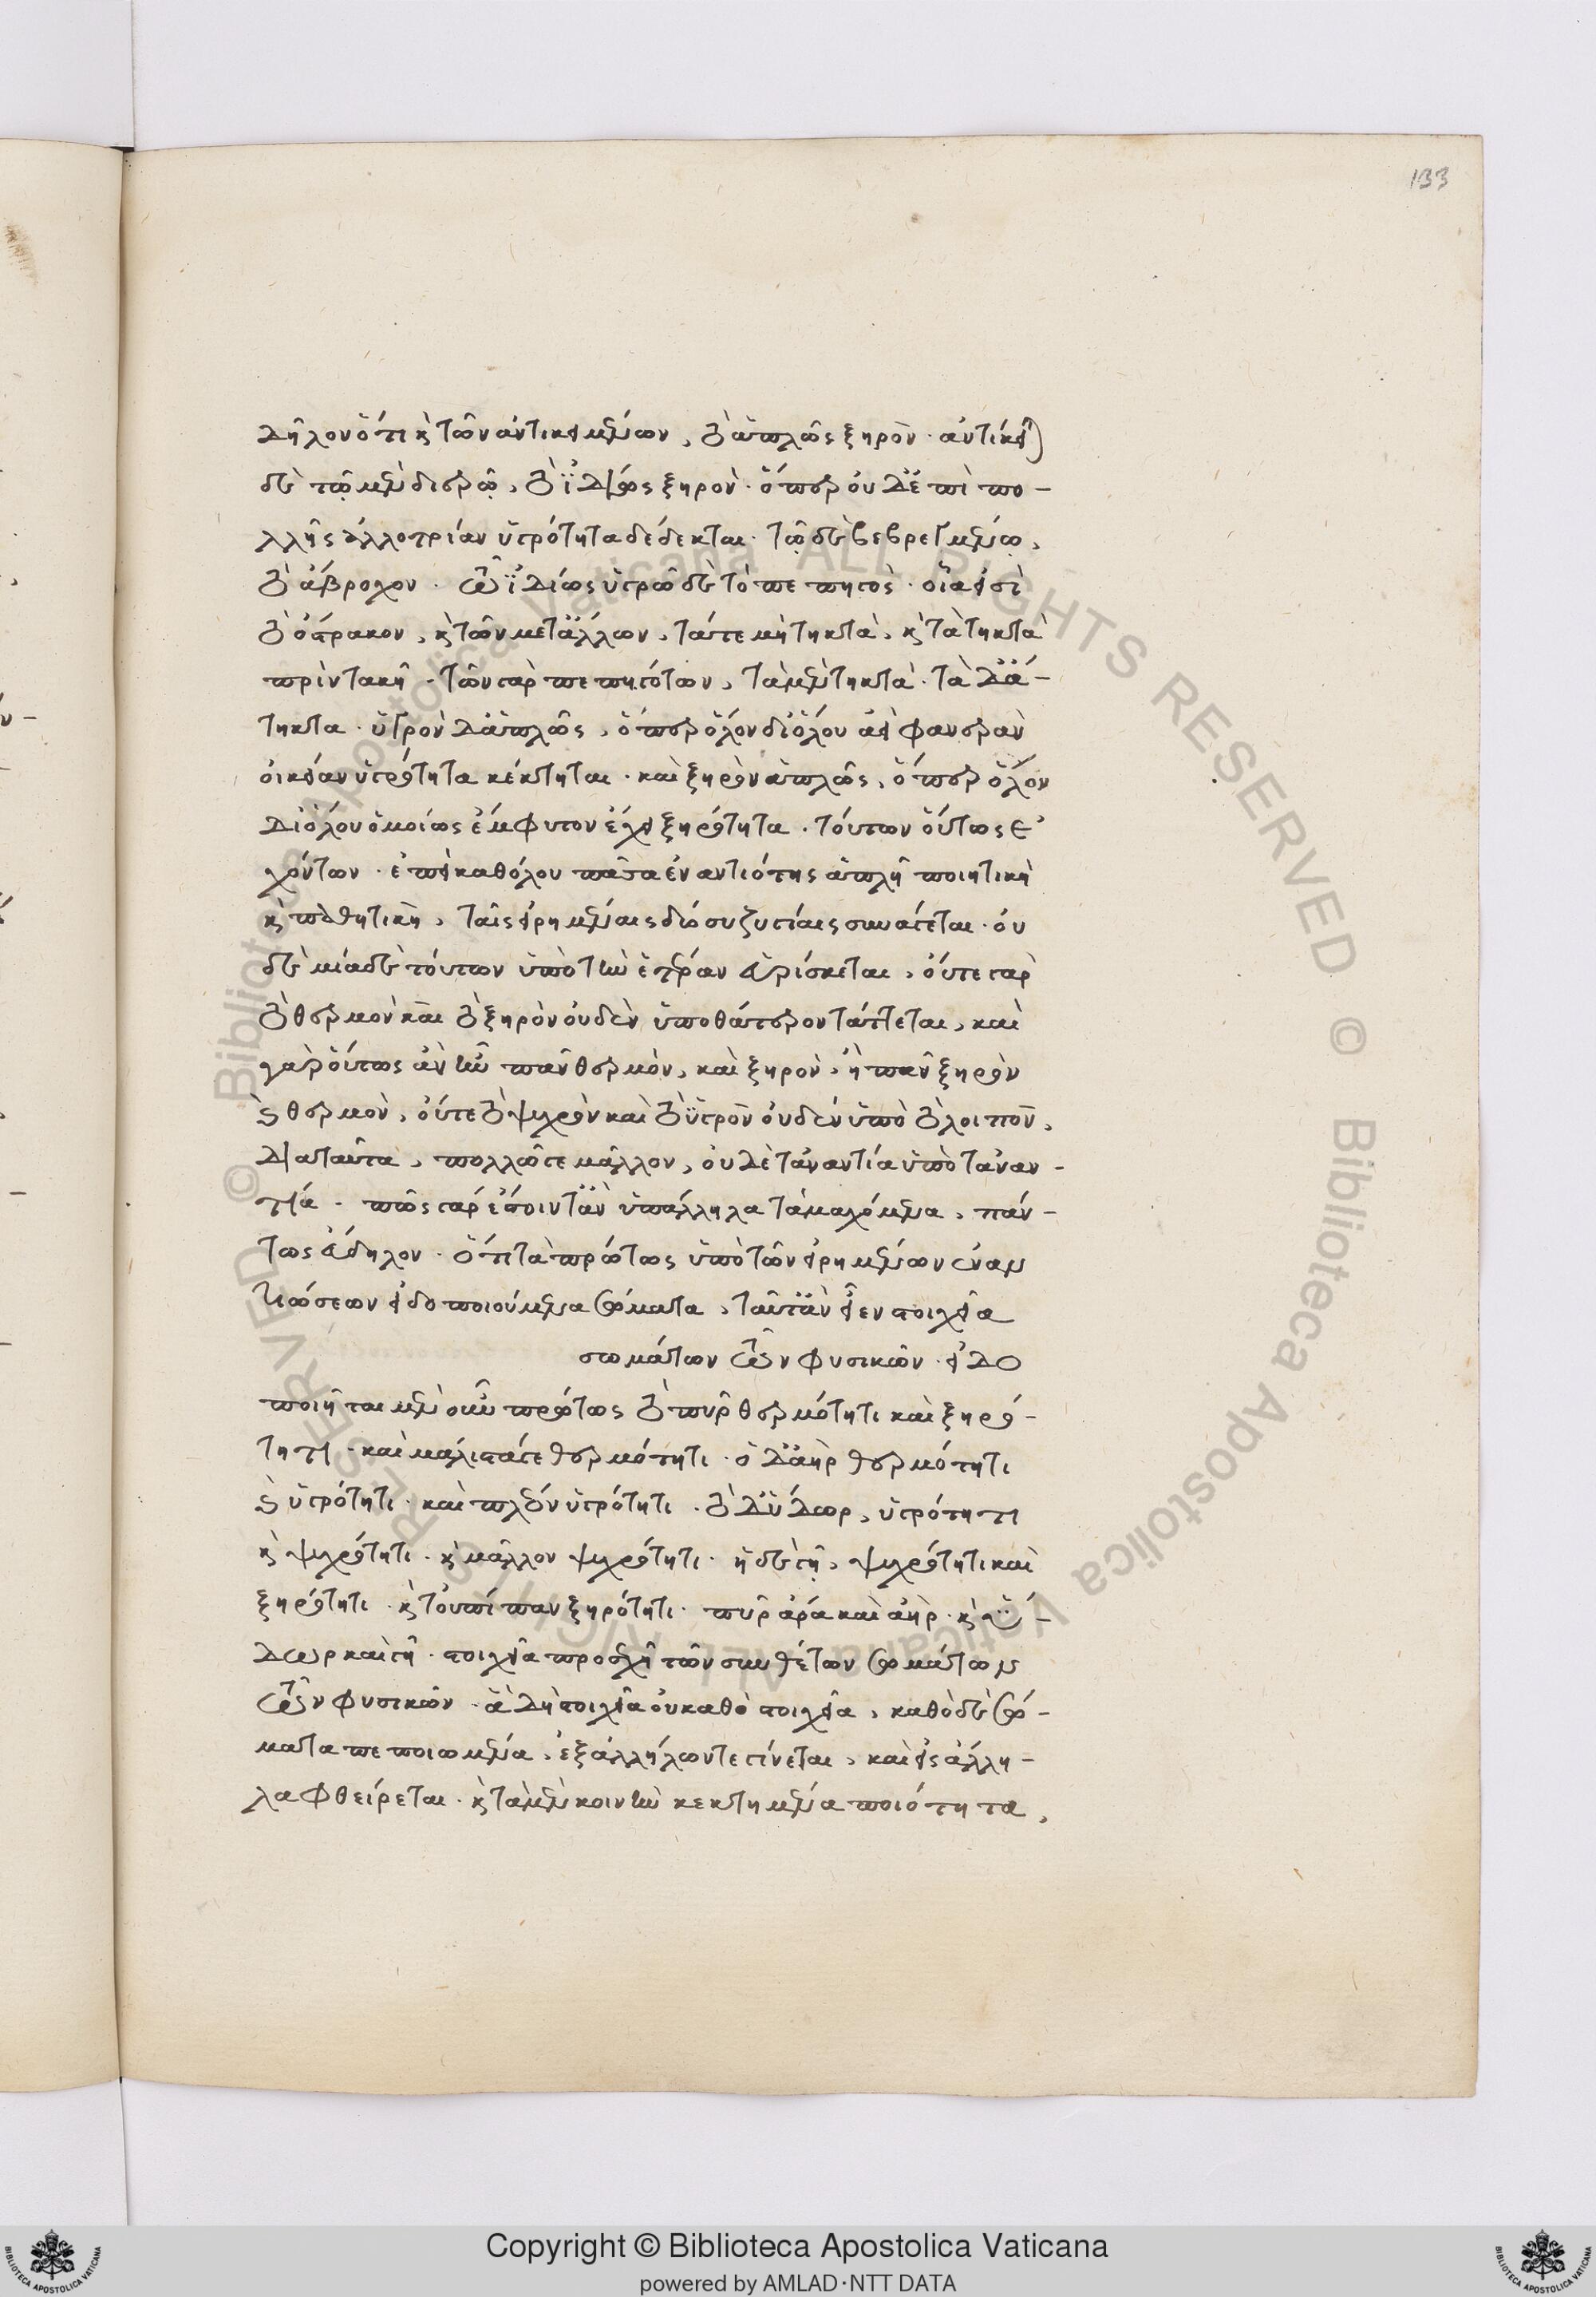 133
δῆλον ὅτι κὶ τῶν ἀντικειμένων, τὸ ἁπλῶς ξηρόν· ἀντίκειται
δὲ τῷ μὲν διερῷ, τὸ ἰδίως ξηρόν· ὅπερ οὐδ' ἐπιπο-
λλῆς ἀλλοτρίαν ὑγρότητα δέδεκται· τῷ δὲ βεβρεγμένῳ,
τὸ ἄβροχον· τῷ ἰδίως ὑγρῷ δὲ τὸ πεπηγός· οἷα εἰσὶ
τὸ ὄστρακον, κὶ τῶν μετάλλων, τά τε μὴ τηκτά, κὶ τὰ τηκτὰ
πρὶν τακῇ· τῶν γὰρ πεπηγότων, τὰ μὲν τηκτά· τὰ δ' ἄ-
τηκτα· ὑγρὸν δ' ἁπλῶς, ὅπερ ὅλον δι' ὅλου ἀεὶ φανερὰν
οἰκείαν ὑγρότητα κέκτηται· καὶ ξηρὸν ἁπλῶς, ὅπερ ὅλον
δι' ὅλου ὁμοίως ἔμφυτον ἔχει ξηρότητα· τούτων οὕτως ἐ-
χόντων· ἐπεὶ καθόλου πᾶσα ἐναντιότης ἁπλῆ ποιητικὴ
κὶ παθητικὴ, ταῖς εἰρημέναις δυσὶ συζυγίαις συνάγεται· οὐ
δὲ μία δὲ τούτων ὑπὸ τὴν ἑτέραν εὑρίσκεται, οὔτε γὰρ
τὸ θερμὸν καὶ τὸ ξηρὸν οὐδὲν ὑπὸ θάτερον τάττεται, καὶ
γὰρ οὕτως ἂν ἦν πᾶν θερμὸν, καὶ ξηρόν, ἢ πᾶν ξηρὸν
κὶ θερμὸν, οὔτε τὸ ψυχρὸν καὶ τὸ ὑγρὸν οὐδὲν ὑπὸ τὸ λοιπόν,
διὰ ταῦτα, πολλῷ γε μᾶλλον, οὐδὲ τἀναντία ὑπὸ τἀναν-
τία· πῶς γὰρ ἔσοιντ' ἂν ὑπάλληλα τὰ μαχόμενα, πάν-
τως εὔδηλον· ὅτι τὰ πρώτως ὑπὸ τῶν εἰρημένων ἐναν
τιώσεων εἰδοποιούμενα σώματα, ταῦτ' ἂν εἶεν στοιχεῖα
σωμάτων τῶν φυσικῶν· εἰδο
ποιῆται μὲν οὖν πρώτως τὸ πῦρ θερμότητι καὶ ξηρό-
τητι· καὶ μάλιστά γε θερμότητι· ὁ δ' ἀὴρ θερμότητι
κὶ ὑγρότητι· καὶ πλέον ὑγρότητι· τὸ δ' ὕδωρ, ὑγρότητι
κὶ ψυχρότητι· κὶ μᾶλλον ψυχρότητι· ἡ δὲ γῆ, ψυχρότητι καὶ
ξηρότητι· κὶ τοὐπίπαν ξηρότητι· πῦρ ἄρα καὶ ἀὴρ· κὶ ὕ-
δωρ καὶ γῆ· στοιχεῖα προσεχῆ τῶν συνθέτων σωμάτων
τῶν φυσικῶν· ἃ δὴ στοιχεῖα οὐ καθὸ στοιχεῖα, καθὸ δὲ σώ-
ματα πεποιωμένα, ἐξ ἀλλήλων τε γίνεται, καὶ εἰς ἄλλη-
λα φθείρεται· κὶ τὰ μὲν κοινὴν κεκτημένα ποιότητα,
Copyright © Biblioteca Apostolica Vaticana
powered by AMLAD·NTT DATA
© Biblioteca Apostolica Vaticana ALL RIGHTS RESERVED © Biblioteca Apostolica Vaticana ALL RIGHTS RESERVED
BIBLIOTECA APOSTOLICA VATICANA
BIBLIOTECA APOSTOLICA VATICANA